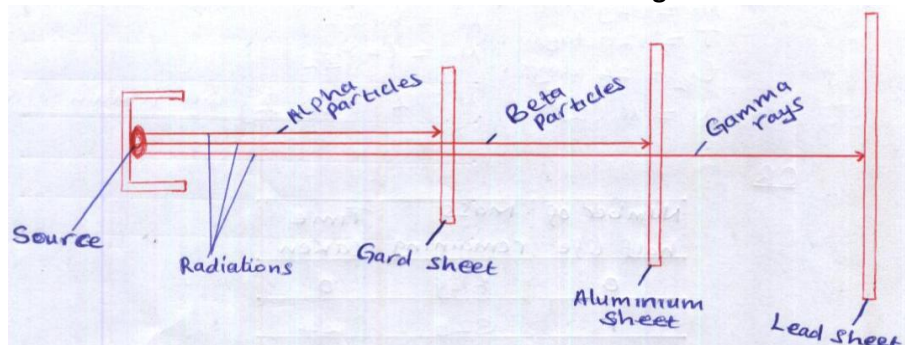 Alpha
particles
Beta
Particles
Gamma
rays
Source
Radiations
Gard sheet
Aluminium
sheet
Lead sheet